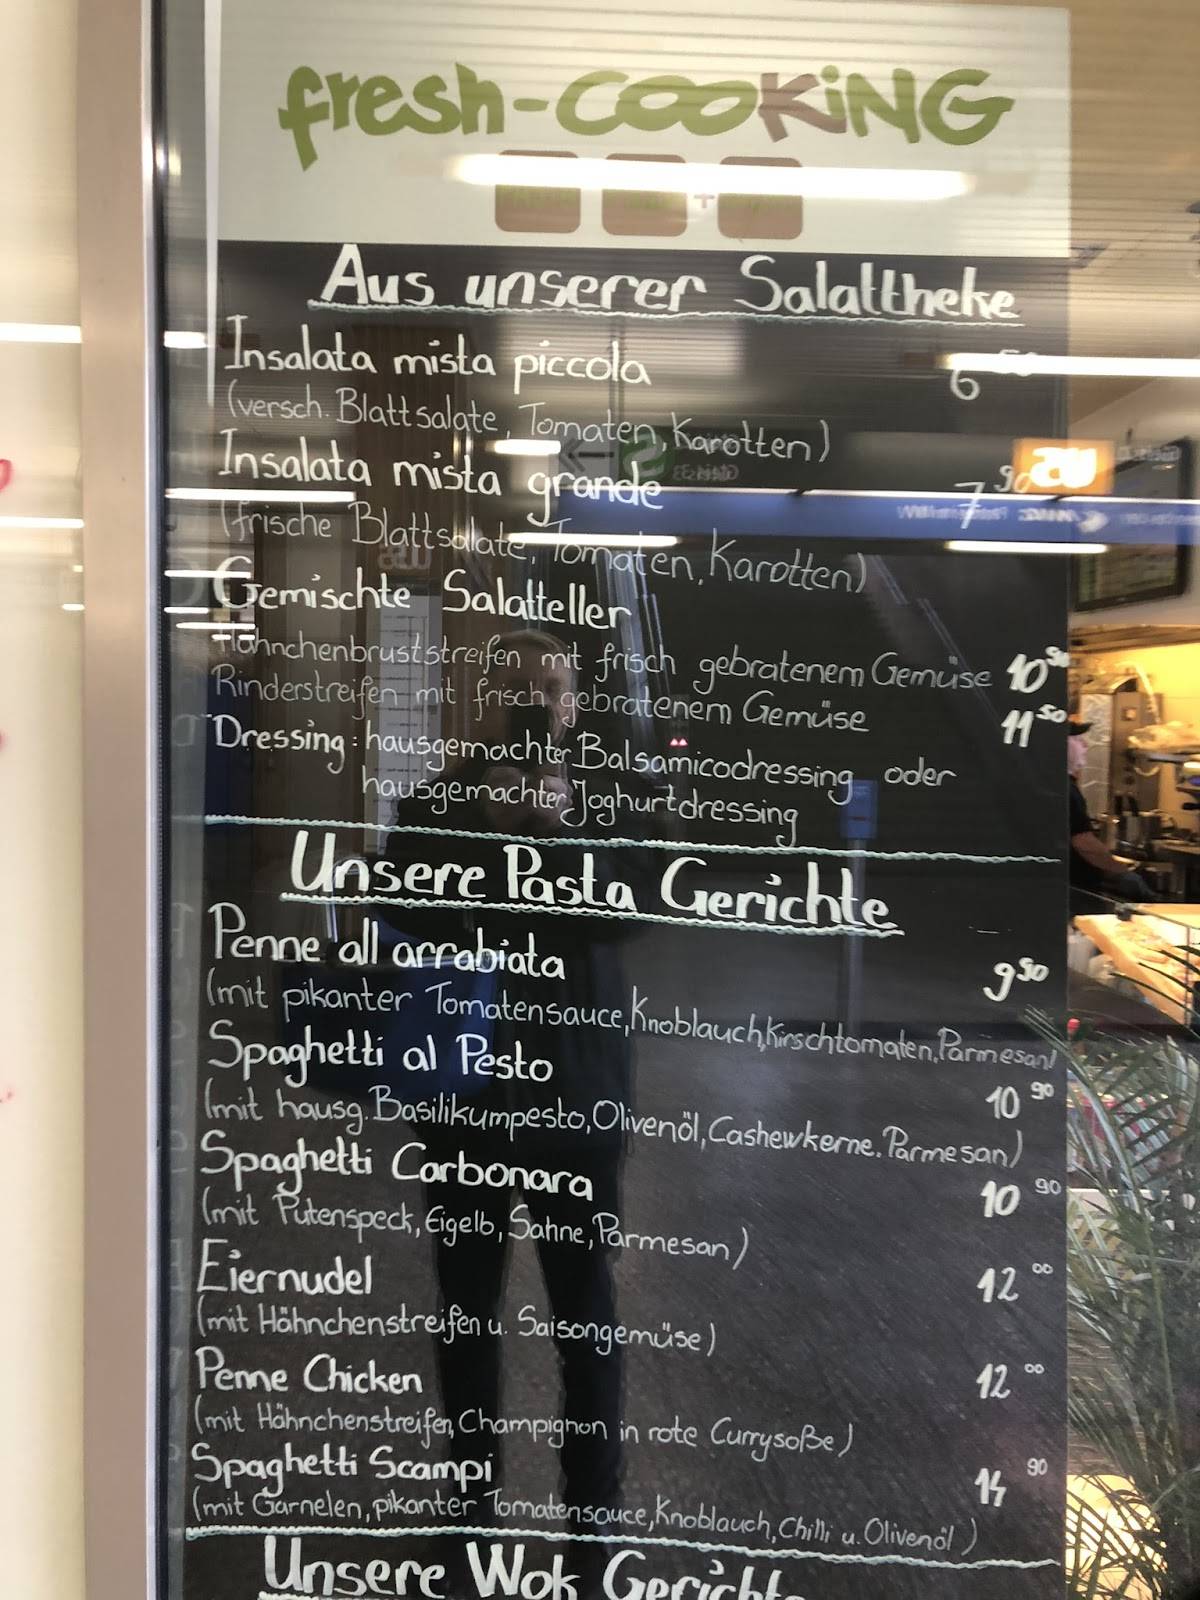 fresh-COOKiNG
Aus unserer Salattheke
Insalata mista piccola 6 50
(versch. Blattsalate, Tomaten, Karotten)
Insalata mista grande 7 90
(frische Blattsalate, Tomaten, Karotten)
Gemischte Salatteller
Hähnchenbruststreifen mit frisch gebratenem Gemüse 10 50
Rinderstreifen mit frisch gebratenem Gemüse 11 50
Dressing: hausgemachter Balsamicodressing oder
hausgemachter Joghurtdressing
Unsere Pasta Gerichte
Penne all arrabiata 9 50
(mit pikanter Tomatensauce, Knoblauch, Kirschtomaten, Parmesan)
Spaghetti al Pesto 10 90
(mit hausg. Basilikumpesto, Olivenöl, Cashewkerne. Parmesan)
Spaghetti Carbonara 10 90
(mit Putenspeck, Eigelb, Sahne, Parmesan)
Eiernudel 12 00
(mit Hähnchenstreifen u. Saisongemüse)
Penne Chicken 12 00
(mit Hähnchenstreifen, Champignon in rote Currysoße)
Spaghetti Scampi 14 90
(mit Garnelen, pikanter Tomatensauce, Knoblauch, Chilli u. Olivenöl)
Unsere Wok Gerichte